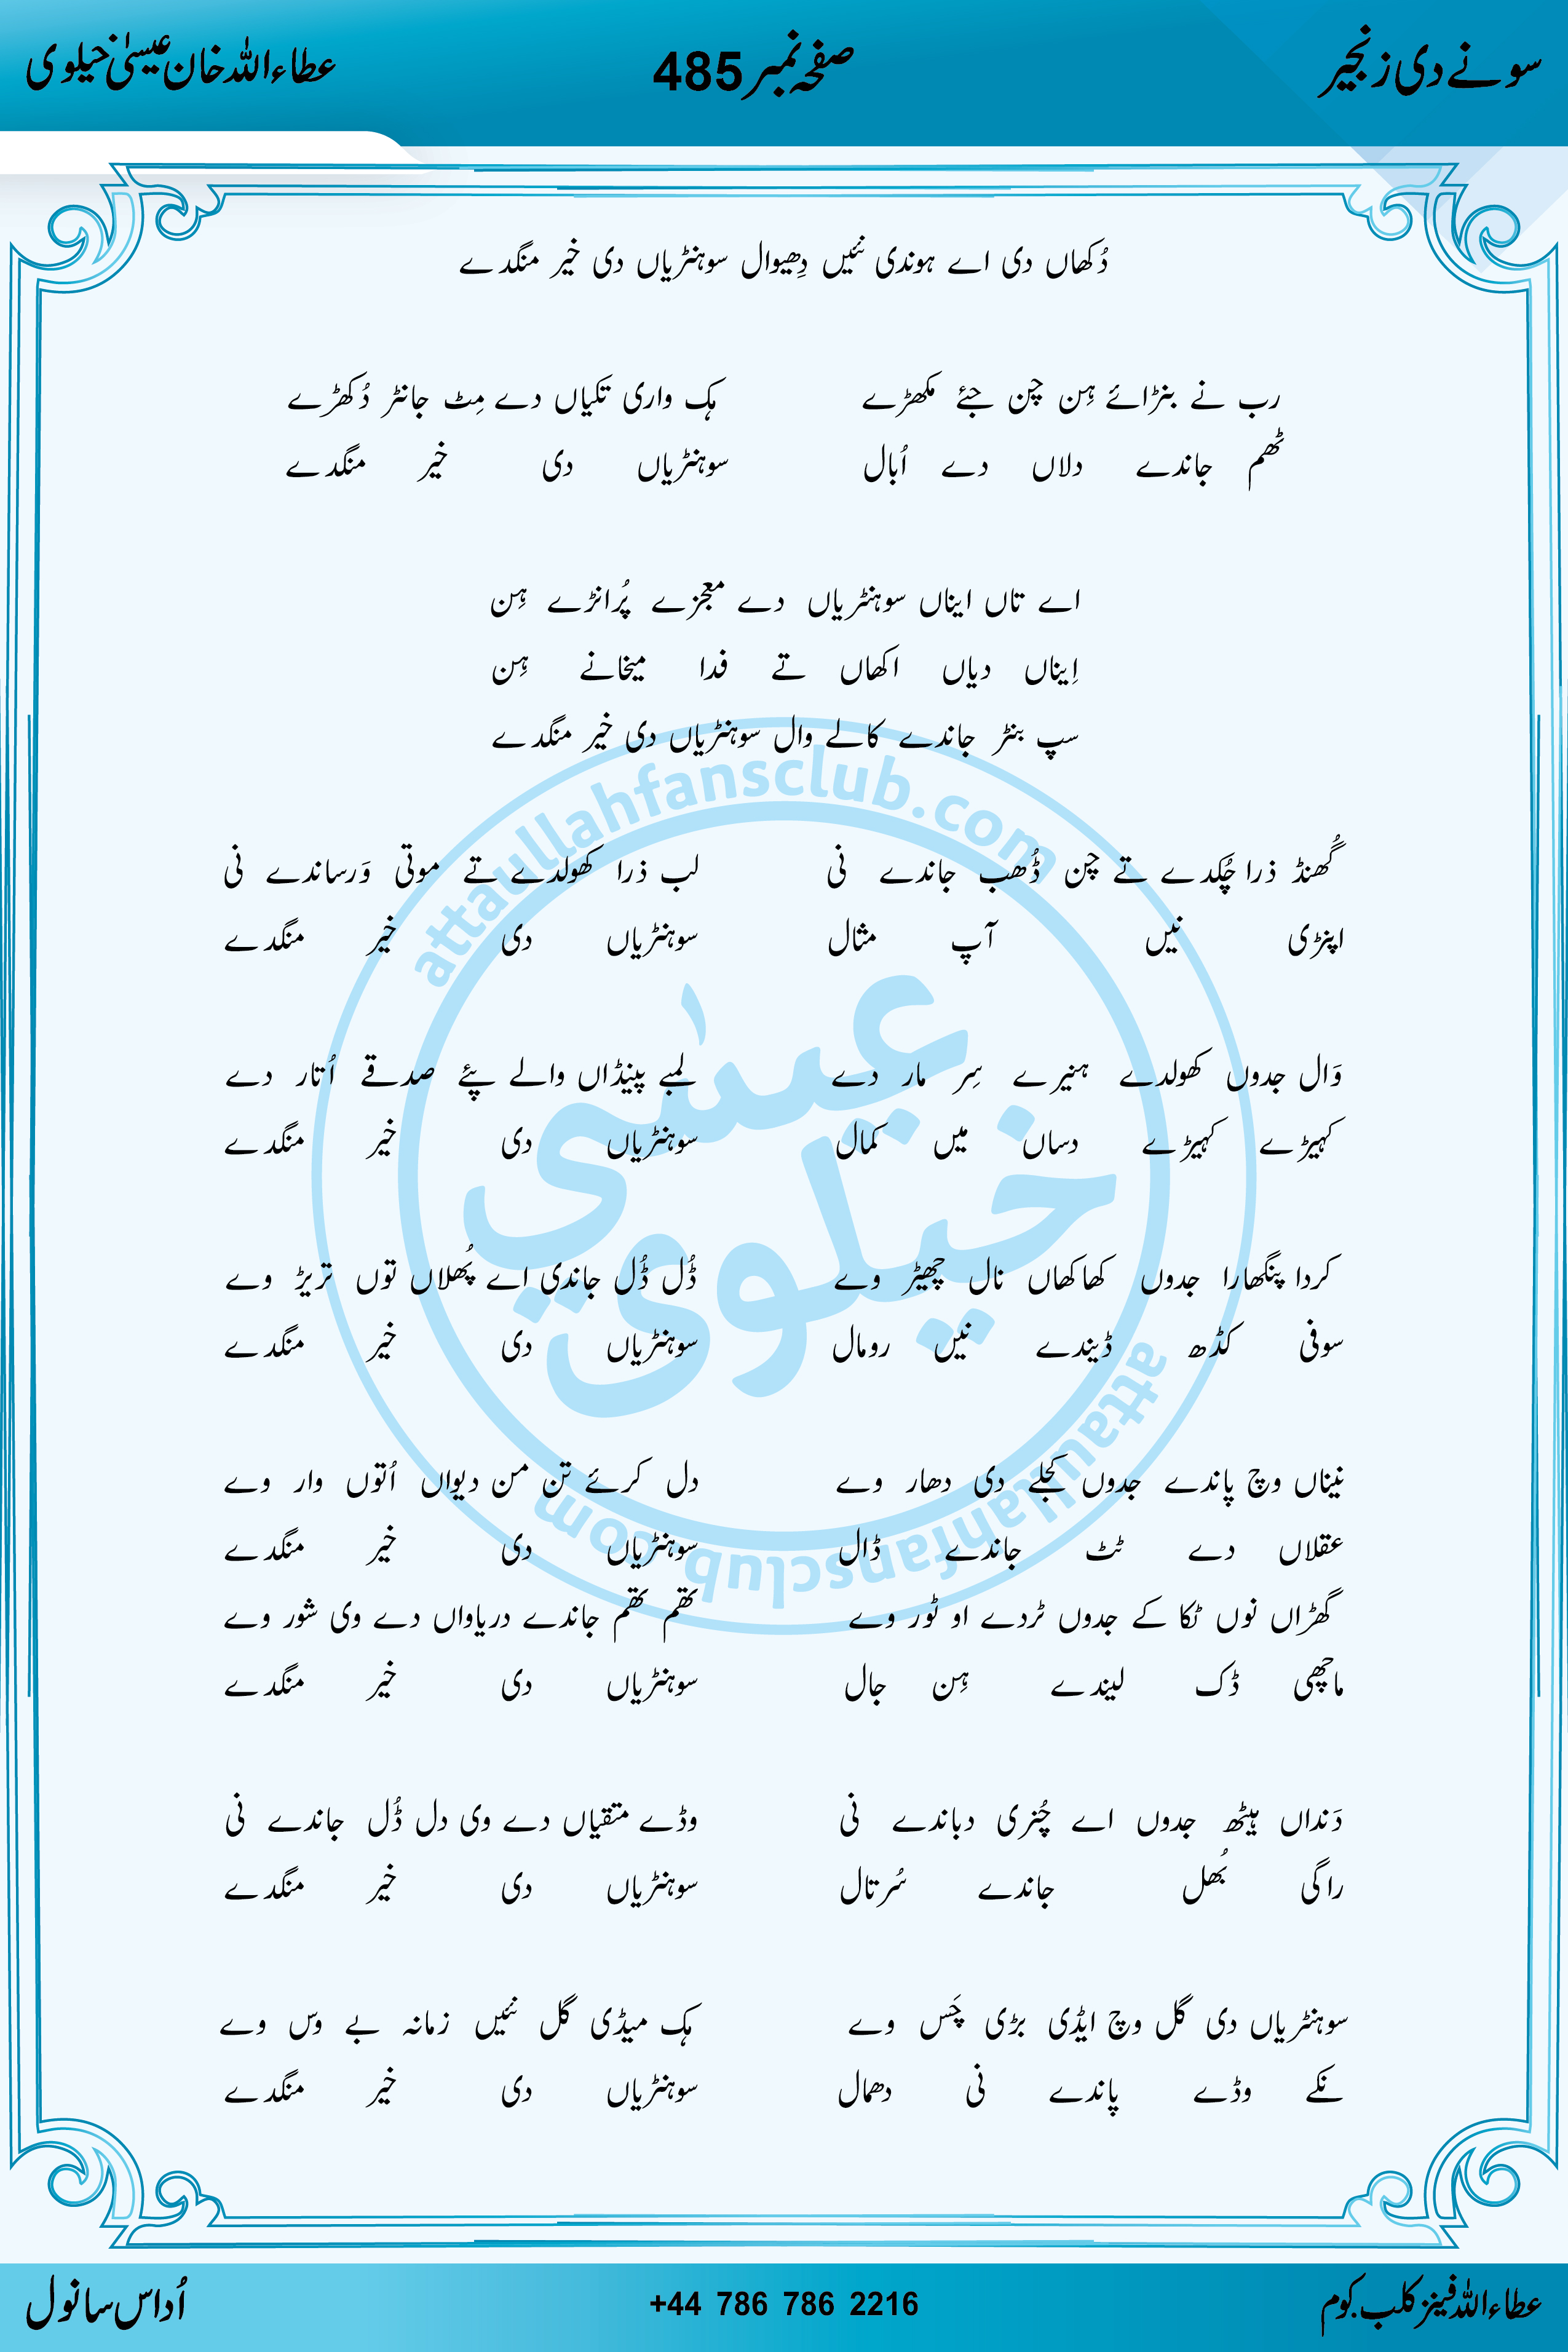 سونے دی زنجیر صفحہ نمبر 485 عطاء اللہ خان عیسیٰ خیلوی
دُکھاں دی اے ہوندی نئیں دِھیوال سوہنڑیاں دی خیر منگدے
رب نے بنڑائے ہِن چن جئے مکھڑے ہک واری تکیاں دے مِٹ جانٹر دُکھڑے
ٹھم جاندے دلاں دے اُبال سوہنڑیاں دی خیر منگدے
اے تاں ایناں سوہنٹریاں دے معجزے پُرانڑے ہِن
اِیناں دیاں اکھاں تے فدا میخانے ہِن
سپ بنٹر جاندے کالے وال سوہنٹریاں دی خیر منگدے
گُھنڈ ذرا چُکدے تے چن ڈُھب جاندے نی لب ذرا کھولدے تے موتی وَرساندے نی
اپنڑی نیں آپ مثال سوہنڑیاں دی خیر منگدے
وَال جدوں کھولدے ہنیرے سِر مار دے لمبے پینڈاں والے پئے صدقے اُتار دے
کہیڑے کہیڑے دساں میں کمال سوہنڑیاں دی خیر منگدے
کردا پنگھارا جدوں کھاکھاں نال چھیڑ وے ڈُل ڈُل جاندی اے پُھلاں توں تریڑ وے
سوفی کڈھ ڈیندے نیں رومال سوہنڑیاں دی خیر منگدے
نیناں وچ پاندے جدوں کجلے دی دھار وے دل کرئے تن من دیواں اُتوں وار وے
عقلاں دے ٹٹ جاندے ڈال سوہنڑیاں دی خیر منگدے
گھڑاں نوں ٹکا کے جدوں ٹردے او ٹور وے تھم تھم جاندے دریاواں دے وی شور وے
ماچھی ڈک لیندے ہِن جال سوہنڑیاں دی خیر منگدے
دَنداں ہیٹھ جدوں اے چُنری دباندے نی وڈے متقیاں دے وی دل ڈُل جاندے نی
راگی بُھل جاندے سُرتال سوہنڑیاں دی خیر منگدے
سوہنٹریاں دی گل وچ ایڈی بڑی چَس وے ہک میڈی گل نئیں زمانہ بے وس وے
نکے وڈے پاندے نی دھمال سوہنڑیاں دی خیر منگدے
attaullahfansclub.com
عیسٰی
خیلوی
attaullahfansclub.com
عطاء اللہ فینز کلب.کوم +44 786 786 2216 اُداس سانول